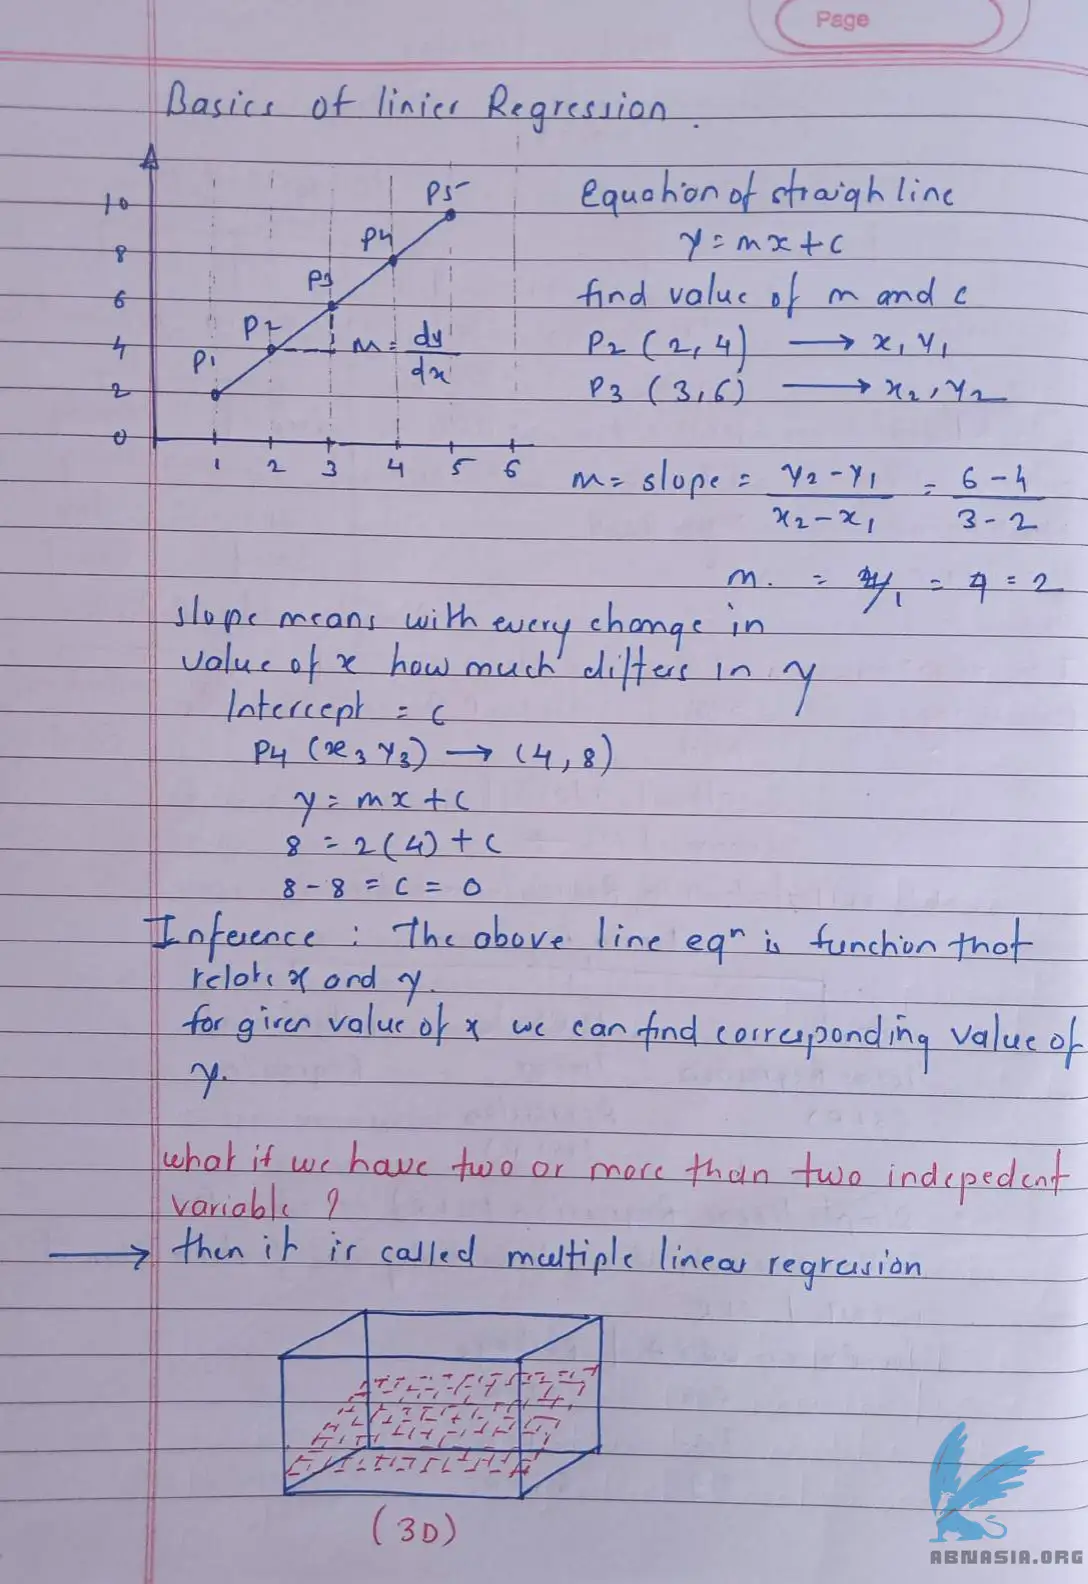 Page
Basics of linier Regression.
10
8
6
4
2
0
1 2 3 4 5 6
P1
P2
P3
P4
P5
M = dy/dx
Equation of straigh line
y = mx + c
find value of m and c
P2 (2,4) → x, y1
P3 (3,6) → x2, y2
m = slope = y2 - y1 / x2 - x1 = 6 - 4 / 3 - 2
m. = /1 = = 2
slope means with every change in
value of x how much differs in y
Intercept = c
P4 (x3 y3) → (4,8)
y = mx + c
8 = 2(4) + c
8 - 8 = c = 0
Inference : The above line eqn is function that
relate x and y.
for given value of x we can find corresponding value of
y.
what if we have two or more than two indepedent
variable ?
→ then it is called multiple linear regression
(3D)
ABNASIA.ORG